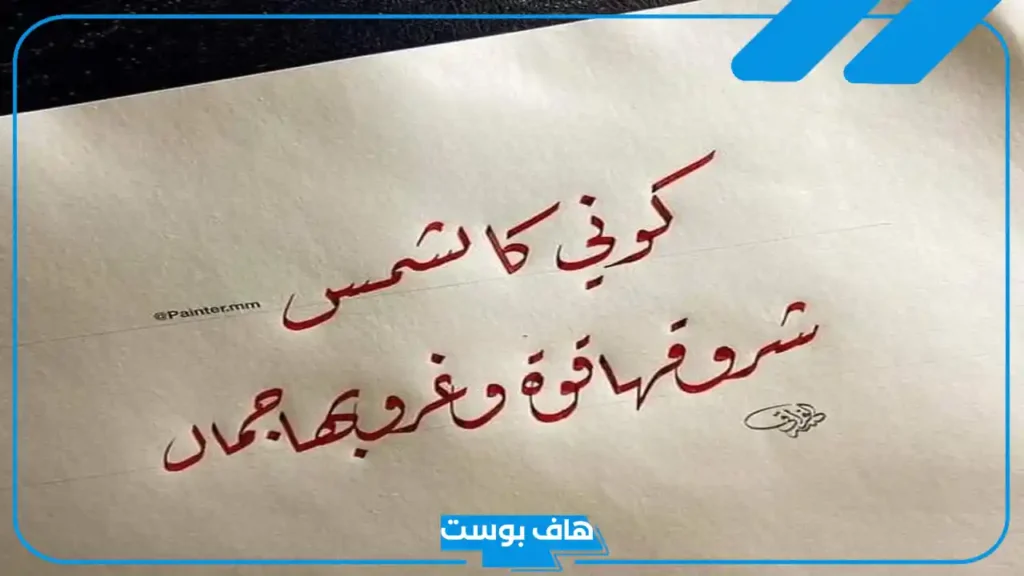 كوني كالشمس
@Painter.mm
شروقها قوة وغروبها جمال
هاف بوست